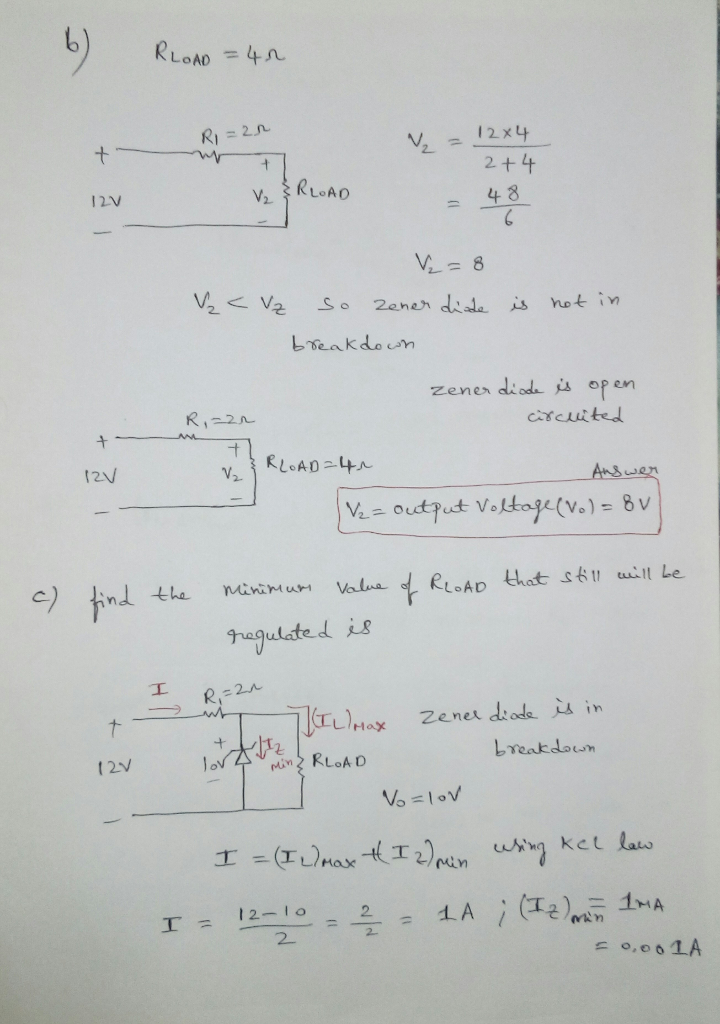 b) RLOAD = 4Ω
R1 = 2Ω
+
12V
−
+
V2
−
RLOAD
V2 = 12x4 / 2+4
= 48 / 6
V2 = 8
V2 < VZ so zener diode is not in
breakdown
zener diode is open
circuited
R1=2Ω
+
12V
−
+
V2
−
RLOAD=4Ω
Answer
V2 = output Voltage(Vo) = 8V
c) find the minimum value of RLOAD that still will be
regulated is
I
R1=2Ω
+
12V
−
+
10V
−
IZ
Min
(IL)Max
RLOAD
zener diode is in
breakdown
Vo=10V
I = (IL)Max + (IZ)min using KCL law
I = 12-10 / 2 = 2 / 2 = 1A ; (IZ)min = 1MA
= 0.001A